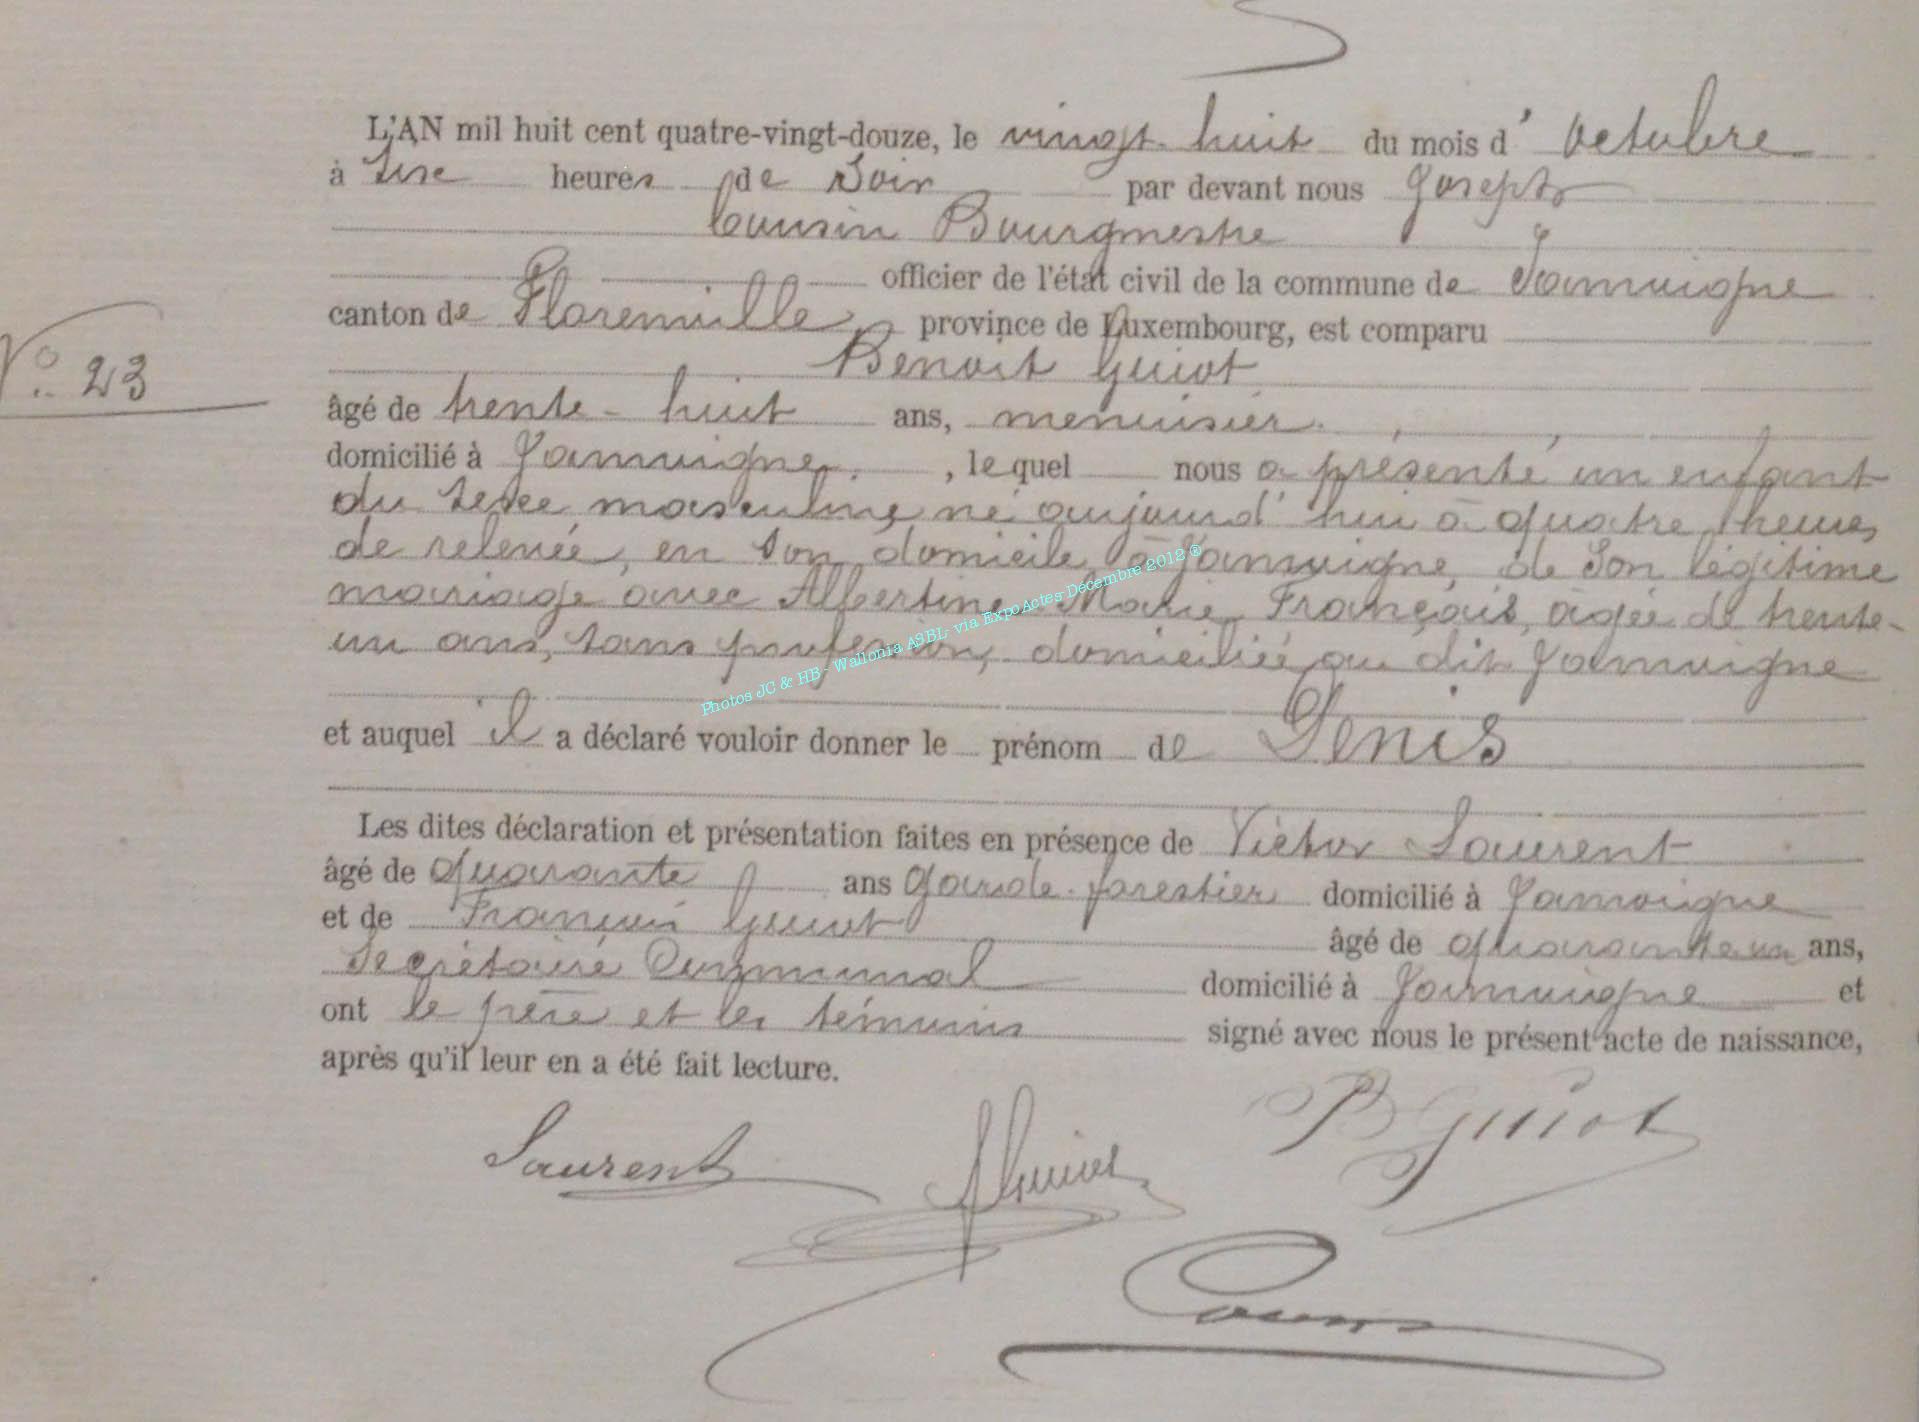 L'AN mil huit cent quatre-vingt-douze, le vingt-huit du mois d'octobre
à six heures de soir par devant nous Joseph
Cousin Bourgmestre
officier de l'état civil de la commune de Jamoigne
canton de Florenville province de Luxembourg, est comparu
Benoit Guiot
N° 23
âgé de trente-huit ans, menuisier
domicilié à Jamoigne, lequel nous a présenté un enfant
du sexe masculin, né aujourd'hui à quatre heures
de relevée, en son domicile à Jamoigne, de son légitime
mariage avec Albertine Marie Français, âgée de trente-
un ans, sans profession, domiciliée au dit Jamoigne
Photos JC & HB - Wallonia ASBL via ExpoActes-Décembre 2012 ®
et auquel il a déclaré vouloir donner le prénom de Denis
Les dites déclaration et présentation faites en présence de Victor Laurent
âgé de quarante ans Garde-forestier domicilié à Jamoigne
et de François Guiot âgé de quarante un ans,
Secrétaire Communal domicilié à Jamoigne et
ont le père et les témoins signé avec nous le présent acte de naissance,
après qu'il leur en a été fait lecture.
Laurent Guiot B Guiot
Cousin